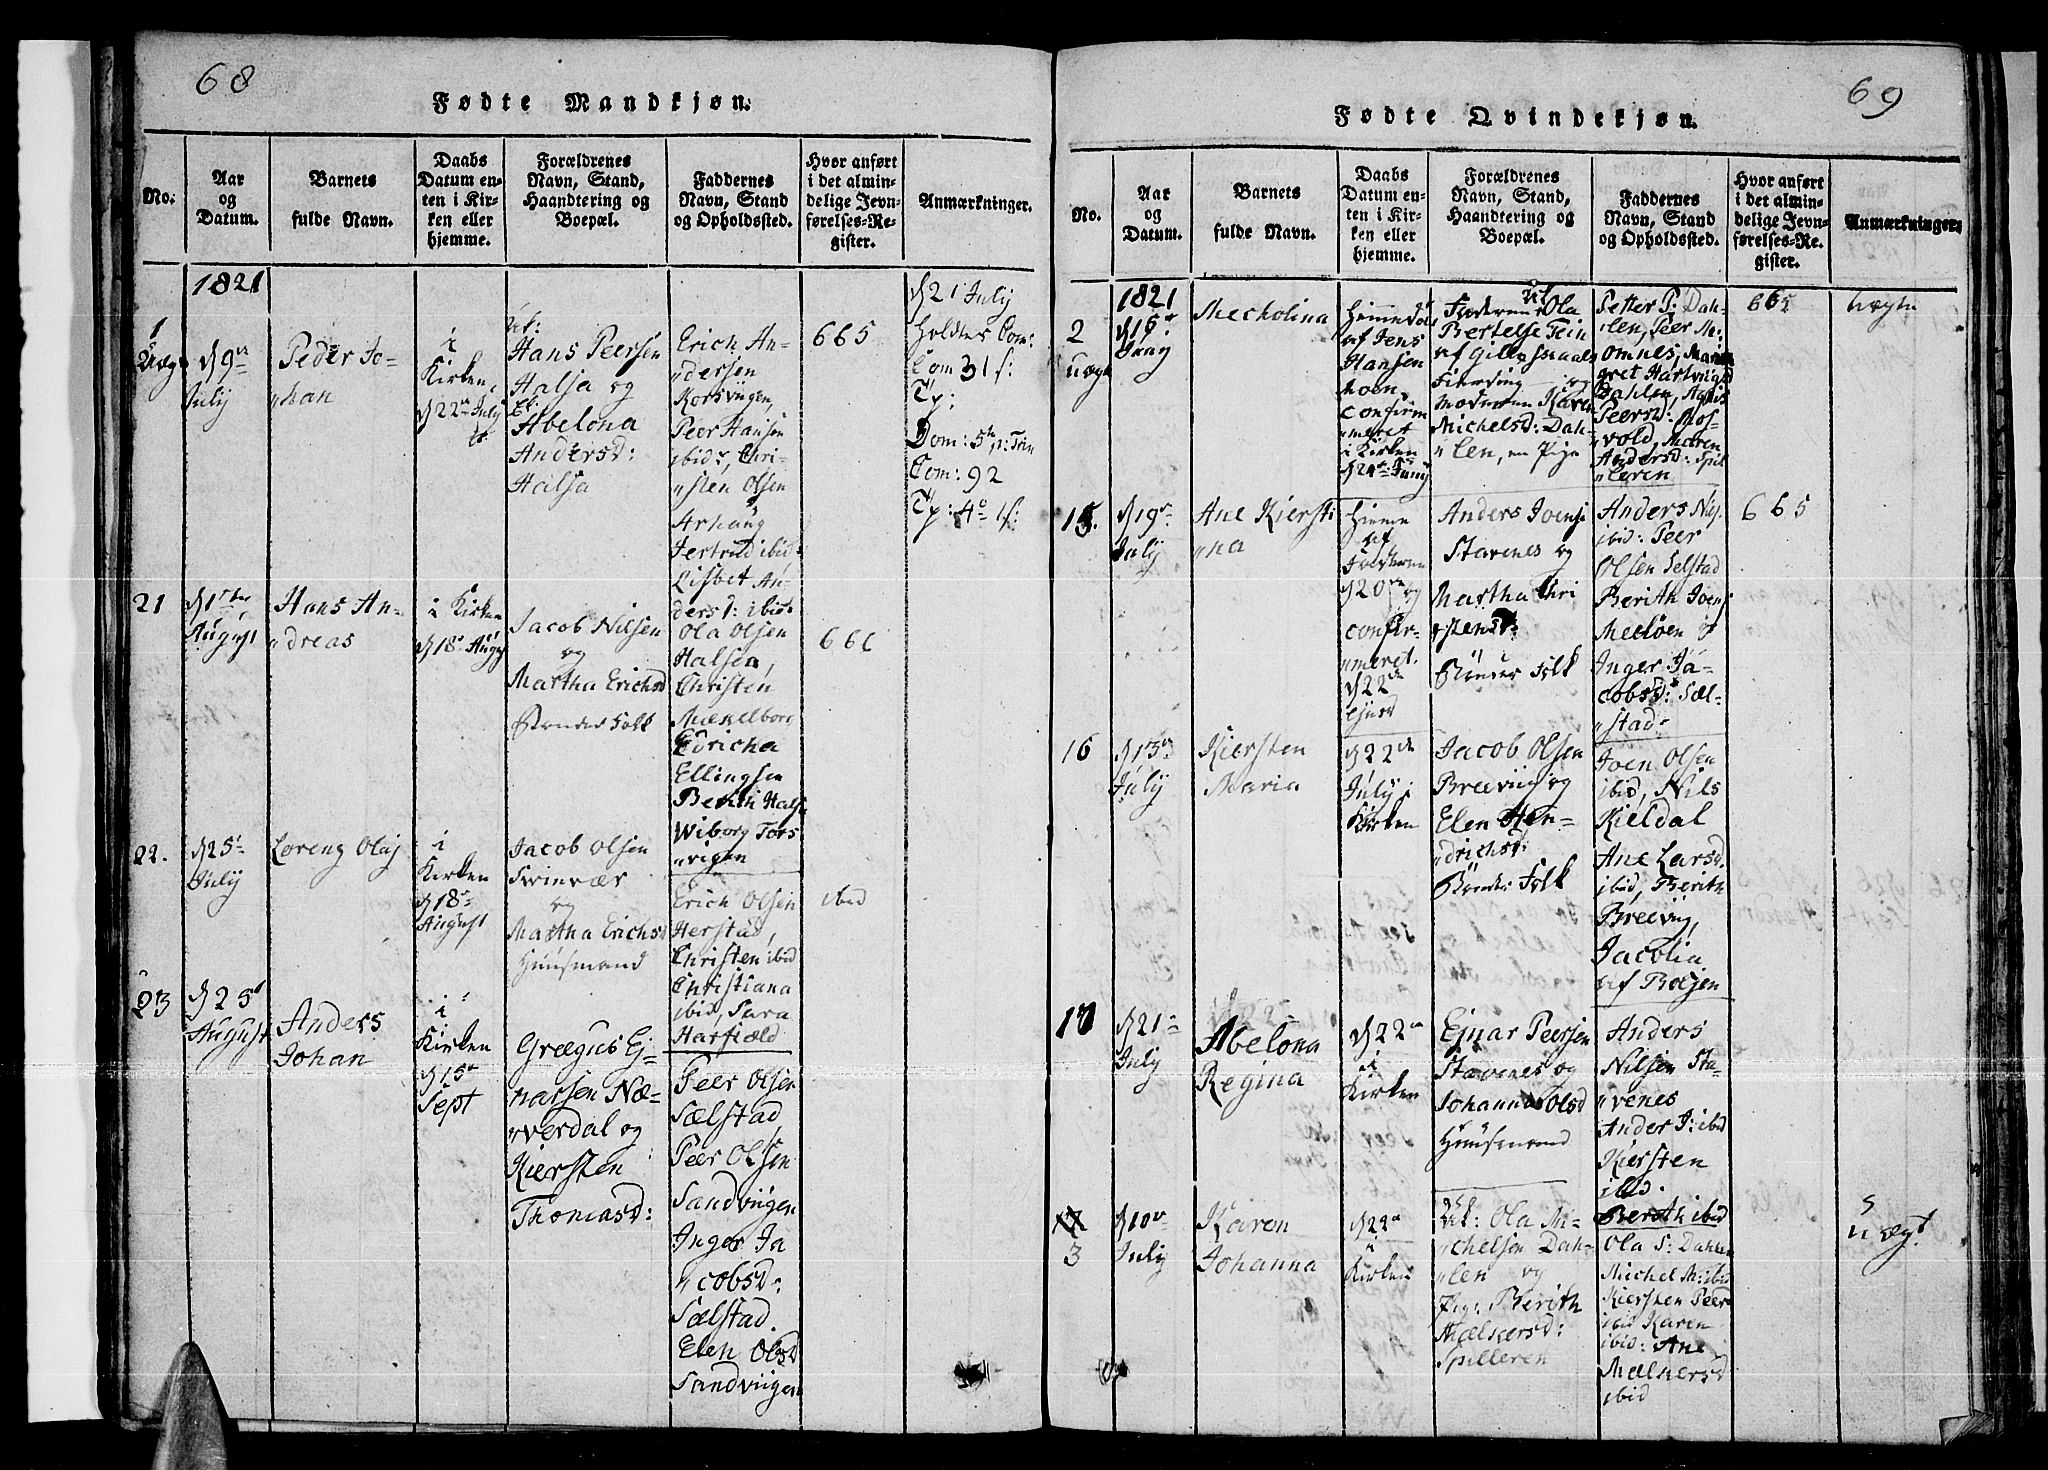 68
Fødte Mandkjøn.
No.
Aar
og
Datum.
Barnets
fulde Navn.
Daabs
Datum en-
ten i Kir-
ken eller
hjemme.
Forældrenes
Navn, Stand,
Haandtering og
Boepæl.
Faddernes
Navn, Stand
og Opholdssted.
Hvor anført
i det almin-
delige Jevn-
førelses-Re-
gister.
Anmærkninger.
1821
1
Uægt
d 9de
July
Peder Jo-
"han
i
Kirken,
d 22de July
Uk:
Hans Peersen
Halsa og
Abelona
Andersd:
Halsa
Erich An-
"dersen
Korsviigen,
Peer Hansen
ibid, Chri-
"sten Olsen
Arhaug
Jertrud ibid
Lisbet An-
dersd: ibid
665
d 21 July
holdtes Com:
Com 31 s:
Dom: 5te p: Trin
Com: 92
21
d 1ste
August
Hans An-
"dreas
i Kirken
d 18 August
Jacob Nilsen
og
Martha Erichsd
Bønder Folk
Ola Olsen
Halsen,
Christen
Mækelborg
Edricha
Ellingsen
Berith Halse
Wiborg Tors
"vigen
666
22.
d 25
July
Lorens Olaj
i
Kirken
d 18
August
Jacob Olsen
Svinvær
og
Martha Erichsd
Huusmand
Erich Olsen
Herstad,
Christen ibid
Christiana
ibid, Sara
Harfiæld
ibid
23
d 25
August
Anders
Johan
i
Kirken
d 15de
Sept
Græguus Ej-
narsen Næ-
"verdal og
Kiersten
Thomasd:
Peer Olsen
Sælstad,
Peer Olsen
Sandviigen
Inger Ja
"cobsd:
Sælstad.
Elen Olsd
Sandviigen
69
Fødte Qvindekjøn.
No.
Aar
og
Datum.
Barnets
fulde Navn.
Daabs
Datum en-
ten i Kir-
ken eller
hjemme.
Forældrenes
Navn, Stand,
Haandtering og
Boepæl.
Faddernes
Navn, Stand
og Opholdssted.
Hvor anført
i det almin-
delige Jevn-
førelses-Re-
gister.
Anmærkninger.
1821
2
uægt
d 16
Juny
Mecholina
Hiemedøbt
af Jens
Hansen
Moen,
confirm
"meret
i Kirken
d 24 Juny
Faderen Uk Ola
Bertelse Fein
af Gilleskaals
Fierding og
Moderen Karen
Michelsd: Dah-
"len, en Pige
Petter P: Dah-
"len, Peer M:
omnes, Mar
gret Hartvigsd
Dahlen,
Peersd: Mos-
vold, Maren
Andersd: Spil
"leren
665
uægte
15.
d 19
July
Ane Kiersti
"na
Hieme
af
Faderen
d 20 og
confir-
"meret
d 22de
Ejusd
Anders Joens
Stavenes og
Martha Chri
"stensd:
Bønder Folk
Anders Nij
ibid: Peer
Olsen Selstad
Berith Joens
Meeløen og
Inger Ja-
cobsd: Sæl-
"stad:
665
16
d 15
July
Kiersten
Maria
d 22de
July i
Kirken
Jacob Olsen
Breeviig og
Elen Hen-
"drichsd:
Bønder Folk
Joen Olsen
ibid, Nils
Kieldal
Ane Larsd.
ibid, Berith
Breeviig,
Jacobia
af Bolsen
17
d 21
July
Abelona
Regina
d 22de
i
Kirken
Ejnar Peersen
Stavenes og
Johanna Olsd
Huusmand
Anders
Nilsen Sta-
"venes
Ander J: ibid
Kiersten
ibid.
Berith ibid
3
d 10de
July
Karen
Johanna
d 22de
Kirken
Uk: Ola Mi-
"chelsen Dah-
"len og
Pige Berith
Mælkersd:
Spilleren
Ola S: Dahlen
Michel M: ibid
Kiersten Peer
ibid Karen
ibid: Ane
Mælkersd
ibid
uægt